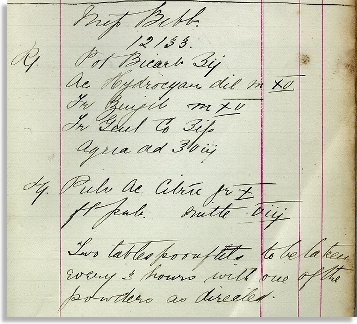 Miss Bebb
12133.
Rx Pot Bicarb ʒij
Ac Hydrocyan dil m XV
Tr Zingib m XV
Tr Gent Co ʒiſs
Aqua ad ℥viij
Pulv Ac Citric gr X
ft pulv. mitte viij
Two tablespoonfuls to be taken
every 3 hours with one of the
powders as directed.